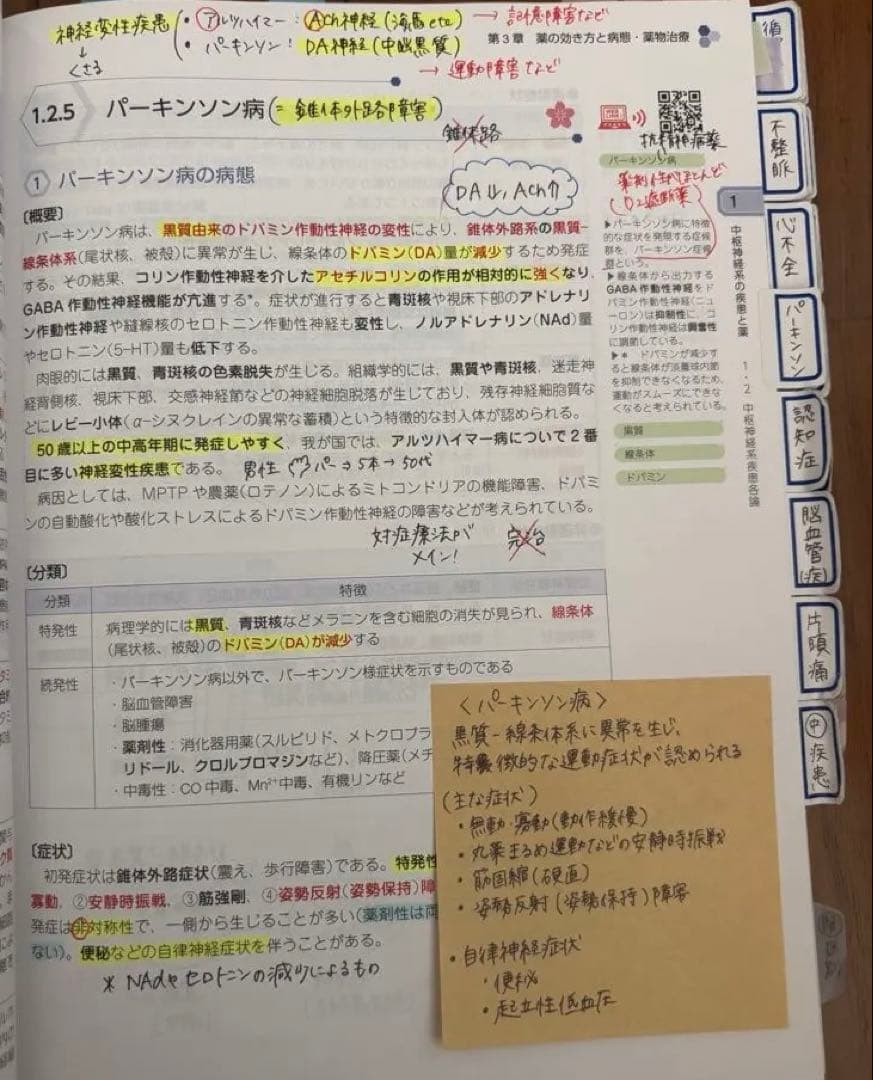 神経変性疾患
くさる
・アルツハイマー：Ach神経(海馬etc) → 記憶障害など
・パーキンソン：DA神経(中脳黒質)
→ 運動障害など
第3章 薬の効き方と病態・薬物治療
1.2.5 パーキンソン病(=錐体外路障害)
錐体路
1 パーキンソン病の病態
DA↓, Ach↑
〔概要〕
パーキンソン病は、黒質由来のドパミン作動性神経の変性により、錐体外路系の黒質-
線条体系(尾状核、被殻)に異常が生じ、線条体のドパミン(DA)量が減少するため発症
する。その結果、コリン作動性神経を介したアセチルコリンの作用が相対的に強くなり、
GABA作動性神経機能が亢進する*。症状が進行すると青斑核や視床下部のアドレナリ
ン作動性神経や縫線核のセロトニン作動性神経も変性し、ノルアドレナリン(NAd)量
やセロトニン(5-HT)量も低下する。
肉眼的には黒質、青斑核の色素脱失が生じる。組織学的には、黒質や青斑核、迷走神
経背側核、視床下部、交感神経節などの神経細胞脱落が生じており、残存神経細胞質な
どにレビー小体(α-シヌクレインの異常な蓄積)という特徴的な封入体が認められる。
50歳以上の中高年期に発症しやすく、我が国では、アルツハイマー病についで2番
目に多い神経変性疾患である。
男性 パー→5本→50代
病因としては、MPTPや農薬(ロテノン)によるミトコンドリアの機能障害、ドパミ
ンの自動酸化や酸化ストレスによるドパミン作動性神経の障害などが考えられている。
対症療法が
メイン！
完治
〔分類〕
分類 特徴
特発性 病理学的には黒質、青斑核などメラニンを含む細胞の消失が見られ、線条体
(尾状核、被殻)のドパミン(DA)が減少する
続発性 ・パーキンソン病以外で、パーキンソン様症状を示すものである
・脳血管障害
・脳腫瘍
・薬剤性：消化器用薬(スルピリド、メトクロプラ
リドール、クロルプロマジンなど)、降圧薬(メチ
・中毒性：CO中毒、Mn²⁺中毒、有機リンなど
〔症状〕
初発症状は錐体外路症状(震え、歩行障害)である。特発性
寡動、②安静時振戦、③筋強剛、④姿勢反射(姿勢保持)障
発症は非対称性で、一側から生じることが多い(薬剤性は両
ない)。便秘などの自律神経症状を伴うことがある。
* NAdやセロトニンの減少によるもの
抗精神病薬
パーキンソン病
薬剤性ほとんど
(D2遮断薬)
▶パーキンソン病に特徴
的な症状を発現する症候
群を、パーキンソン症候
群という。
▶線条体から出力する
GABA作動性神経をド
パミン作動性神経(ニュ
ーロン)は抑制性に、コ
リン作動性神経は興奮性
に調節している。
▶* ドパミンが減少す
ると線条体が淡蒼球内節
を抑制できなくなるため、
運動がスムーズにできな
くなると考えられている。
黒質
線条体
ドパミン
1
中枢神経系の疾患と薬
1・2 中枢神経系疾患各論
循
不整脈
心不全
パーキンソン
認知症
脳血管(疾)
片頭痛
中疾患
<パーキンソン病>
黒質-線条体系に異常を生じ、
特徴的な運動症状が認められる
(主な症状)
・無動・寡動(動作緩慢)
・丸薬まるめ運動などの安静時振戦
・筋固縮(硬直)
・姿勢反射(姿勢保持)障害
・自律神経症状
・便秘
・起立性低血圧